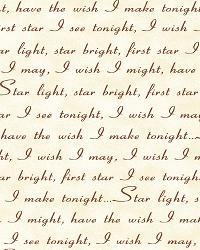 t, have the wish I make tonight
rst star I see tonight, I wish
ar light, star bright, first star I
I may, I wish I might, have
Star light, star bright, first s
ar I see tonight, I wish I m
have the wish I make tonight...
ht, I wish I may, I wish I m
ight, first star I see tonight
h I make tonight...Star light, s
I might, have the wish I mak
I see tonight, I wish I may,